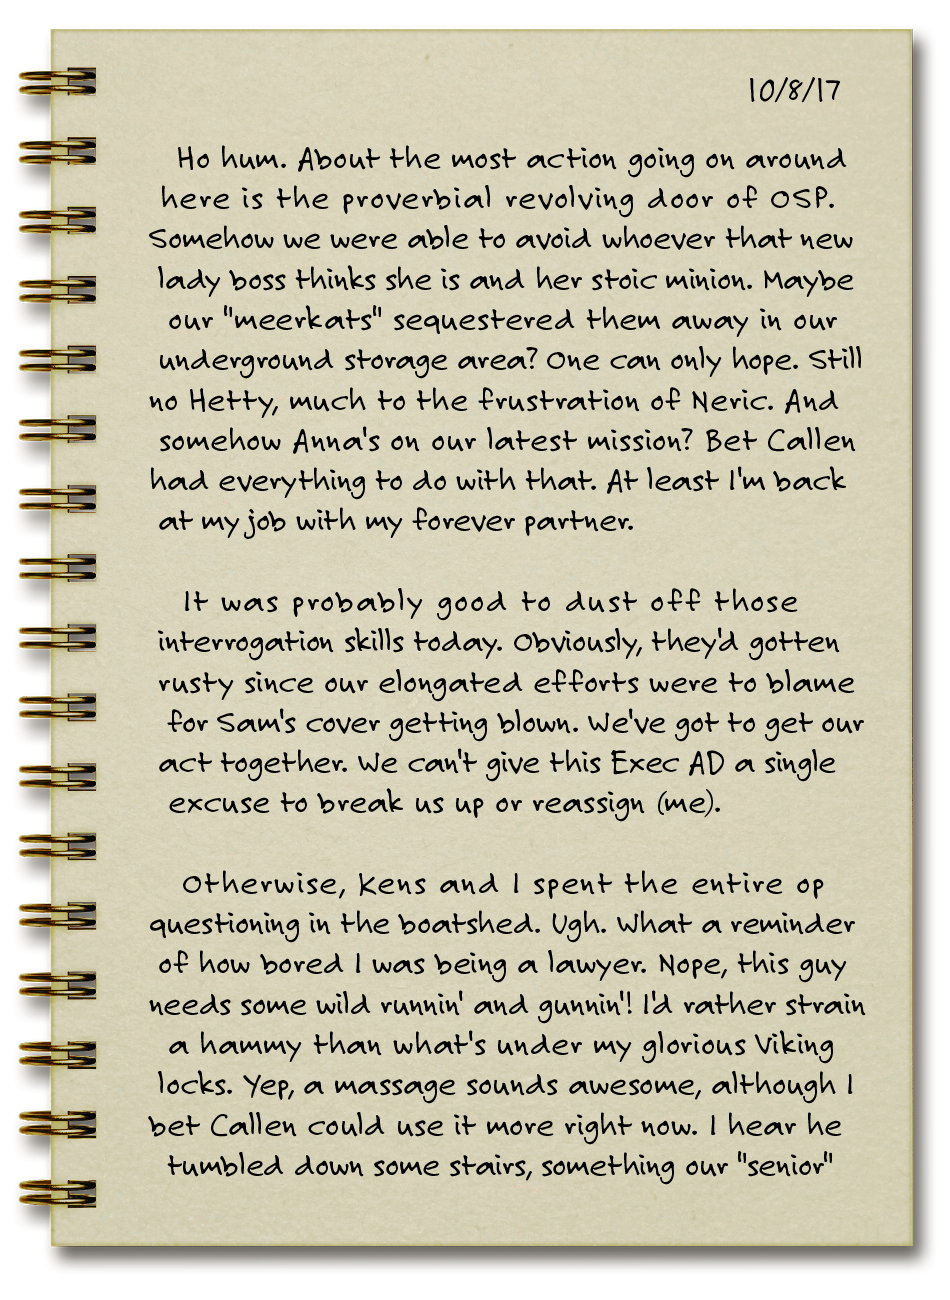 10/8/17
Ho hum. About the most action going on around
here is the proverbial revolving door of OSP.
Somehow we were able to avoid whoever that new
lady boss thinks she is and her stoic minion. Maybe
our "meerkats" sequestered them away in our
underground storage area? One can only hope. Still
no Hetty, much to the frustration of Neric. And
somehow Anna's on our latest mission? Bet Callen
had everything to do with that. At least I'm back
at my job with my forever partner.
It was probably good to dust off those
interrogation skills today. Obviously, they'd gotten
rusty since our elongated efforts were to blame
for Sam's cover getting blown. We've got to get our
act together. We can't give this Exec AD a single
excuse to break us up or reassign (me).
Otherwise, Kens and I spent the entire op
questioning in the boatshed. Ugh. What a reminder
of how bored I was being a lawyer. Nope, this guy
needs some wild runnin' and gunnin'! I'd rather strain
a hammy than what's under my glorious Viking
locks. Yep, a massage sounds awesome, although I
bet Callen could use it more right now. I hear he
tumbled down some stairs, something our "senior"